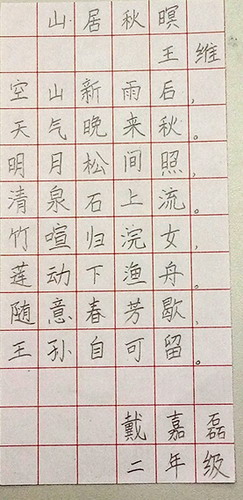 山居秋暝
王维
空山新雨后，
天气晚来秋。
明月松间照，
清泉石上流。
竹喧归浣女，
莲动下渔舟。
随意春芳歇，
王孙自可留。
戴嘉磊
二年级